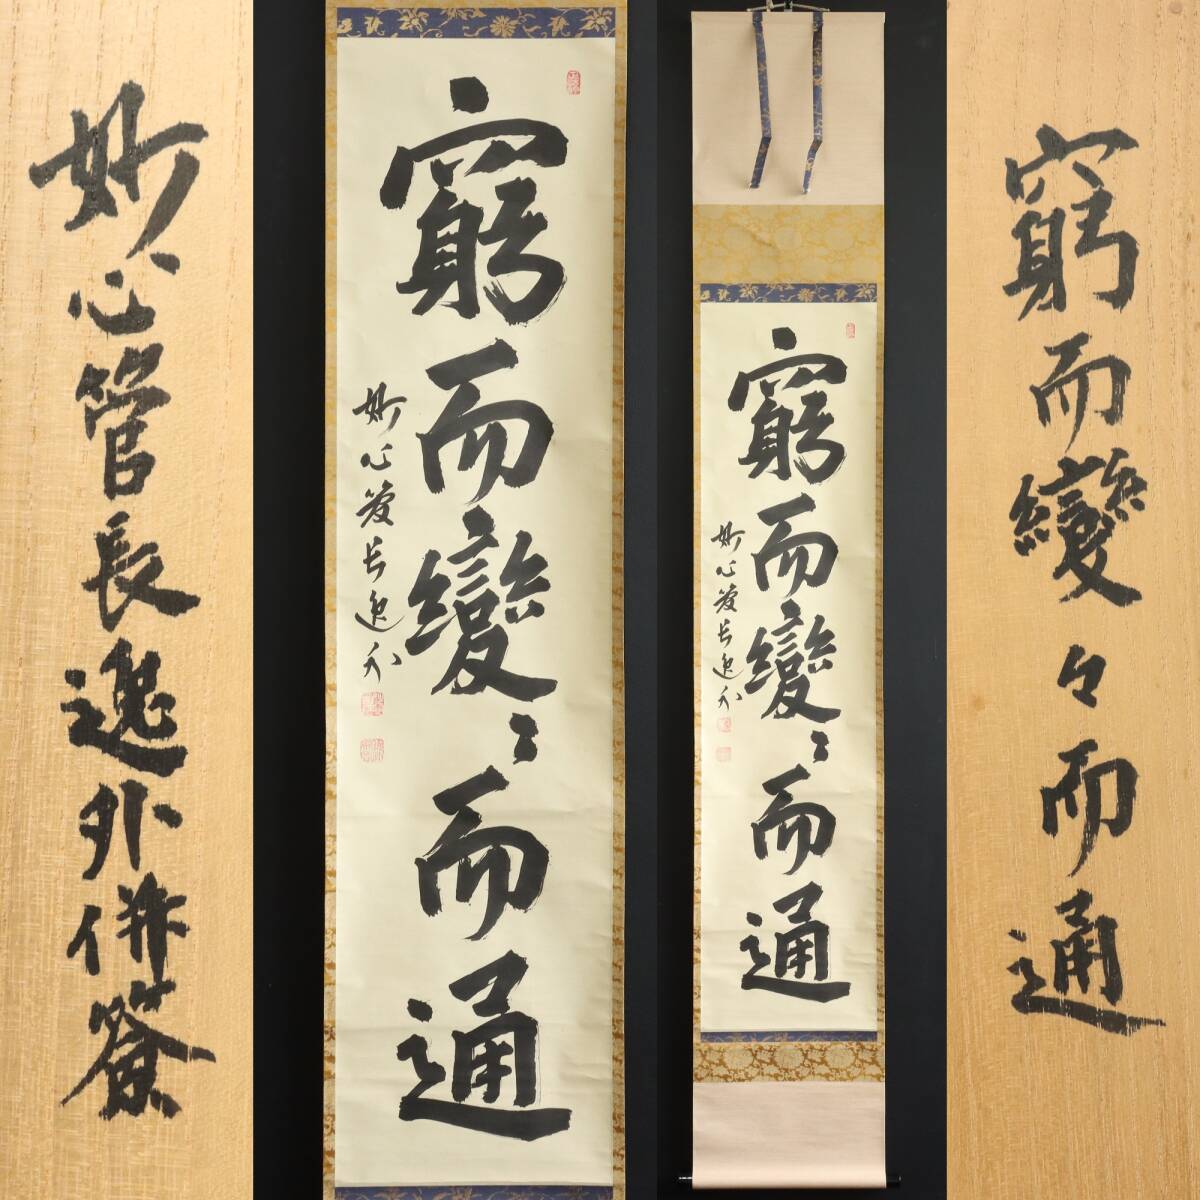 窮而變々而通
妙心管長逸外
窮而變々而通
妙心管長逸外
窮而變々而通
妙心管長逸外併簽